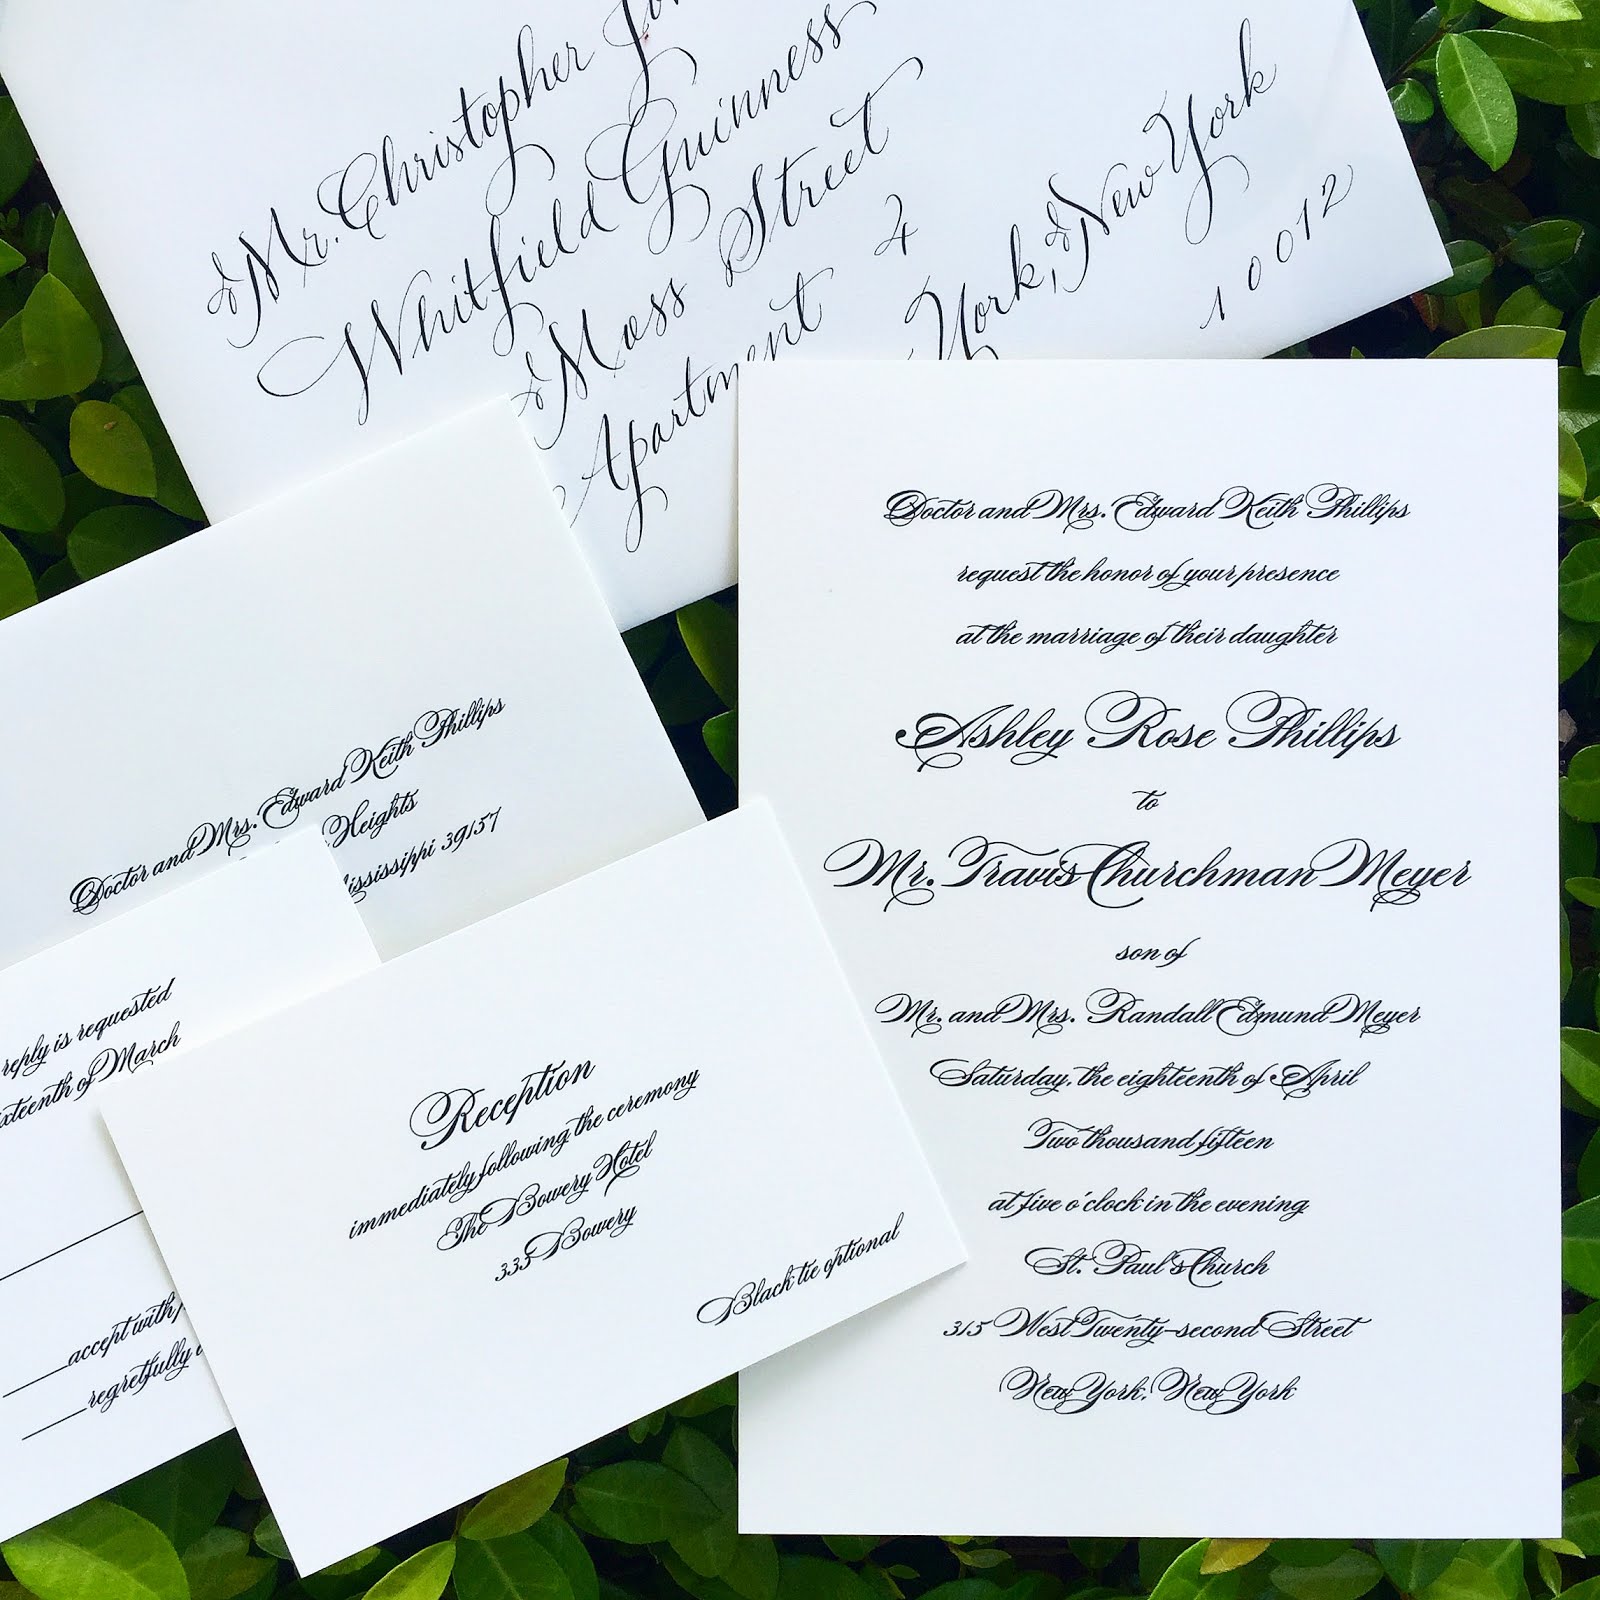 Mr. Christopher
Whitfield Guinness
Moss Street
Apartment 4
York, New York
10012
Doctor and Mrs. Edward Keith Phillips
Heights
39157
reply is requested
of March
accept with
regretfully
Reception
immediately following the ceremony
The Bowery Hotel
335 Bowery
Black tie optional
Doctor and Mrs. Edward Keith Phillips
request the honor of your presence
at the marriage of their daughter
Ashley Rose Phillips
to
Mr. Travis Churchman Meyer
son of
Mr. and Mrs. Randall Edmund Meyer
Saturday, the eighteenth of April
Two thousand fifteen
at five o'clock in the evening
St. Paul's Church
315 West Twenty-second Street
New York, New York